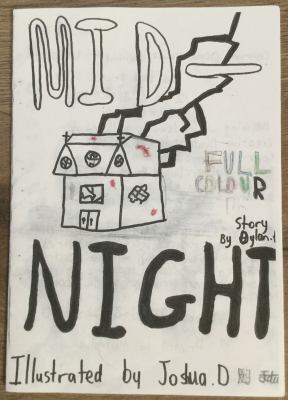 MID-
FULL
COLOUR
Story
By Dylan.t
NIGHT
Illustrated by Joshua.D